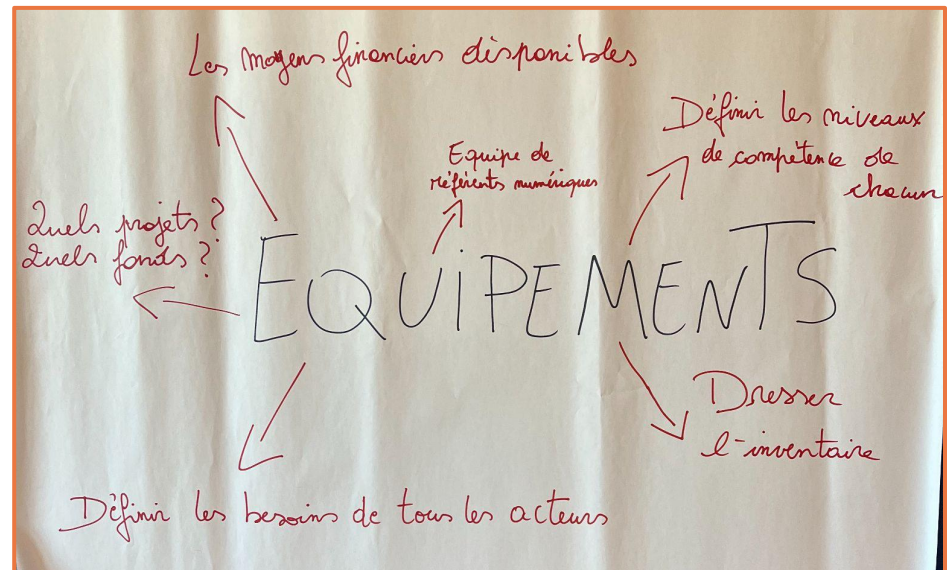 Les moyens financiers disponibles
Equipe de
référents numériques
Définir les niveaux
de compétence de
chacun
Quels projets ?
Quels fonds ?
EQUIPEMENTS
Dresser
l'inventaire
Définir les besoins de tous les acteurs